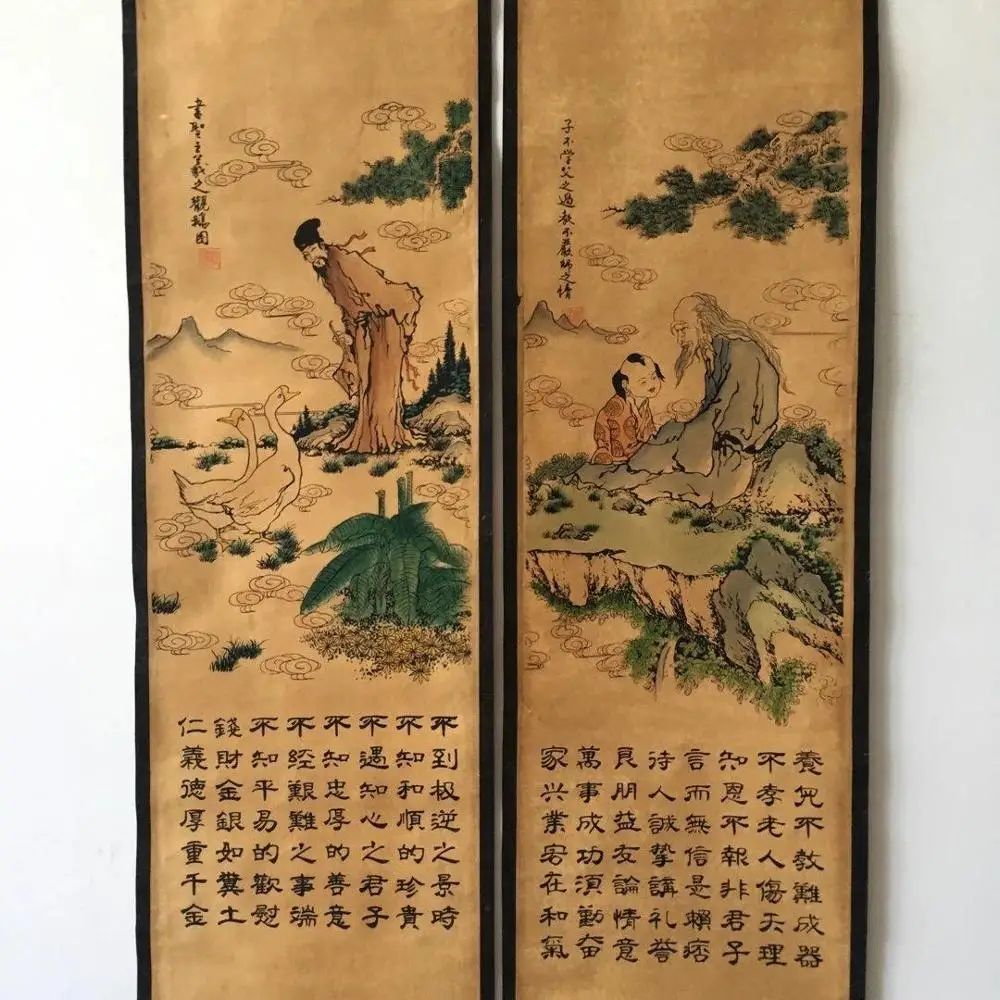 書聖王羲之觀鵝图
不到极逆之景時
不知和順的珍貴
不遇知心之君子
不知忠厚的善意
不經艱難之事端
不知平易的歡慰
錢財金銀如糞土
仁義德厚重千金
子不学父之過教不嚴師之情
養兒不教難成器
不孝老人傷天理
知恩不報非君子
言而無信是賴痞
待人誠摯講礼誉
良朋益友論情意
萬事成功須勤奋
家兴業宏在和氣